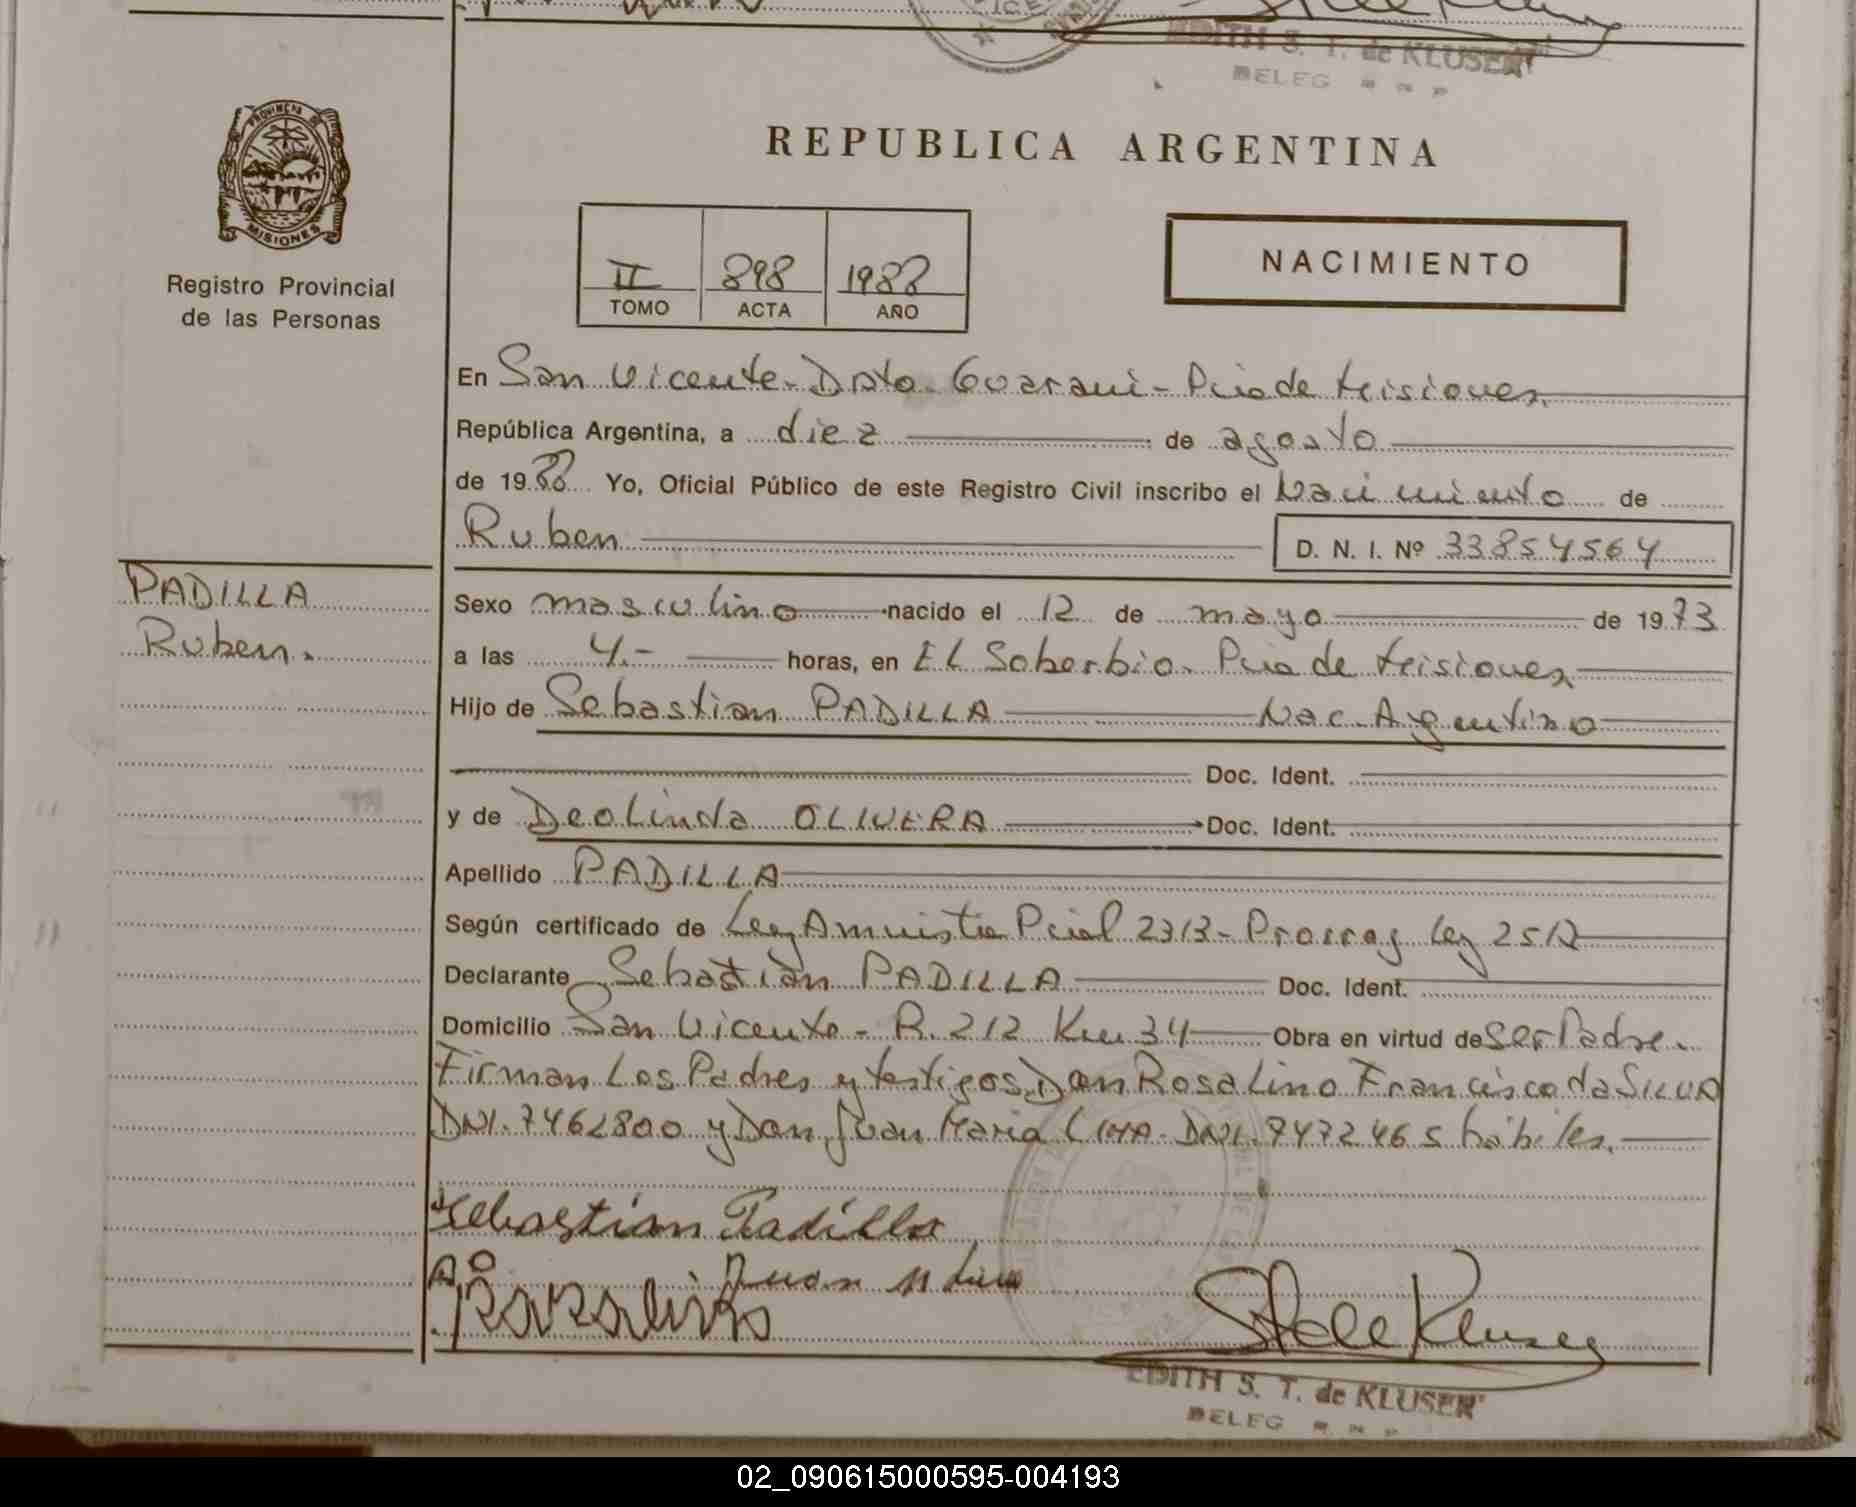 EDITH S. T. de KLUSER
DELEG R N P
PROVINCIA DE
MISIONES
Registro Provincial
de las Personas
REPUBLICA ARGENTINA
II 898 1988
TOMO ACTA AÑO
NACIMIENTO
En San Vicente - Dpto. Guarani - Pcia de Misiones
República Argentina, a diez de agosto
de 1988 Yo, Oficial Público de este Registro Civil inscribo el Nacimiento de
Ruben D. N. I. Nº 33854564
PADILLA
Ruben.
Sexo masculino nacido el 12 de mayo de 1973
a las 4.- horas, en EL Soberbio. Pcia de Misiones
Hijo de Sebastian PADILLA Nac. Argentino
Doc. Ident.
y de Deolinda OLIVERA Doc. Ident.
Apellido PADILLA
Según certificado de Ley Amnistia Pcial 2313 - Prorrog Ley 2512
Declarante Sebastian PADILLA Doc. Ident.
Domicilio San Vicente - R. 212 Km 34 Obra en virtud de Ser Padre.
Firman Los Padres y testigos Don Rosalino Francisco da SILVA
DNI. 7462800 y Don Juan Maria LIMA. DNI. 7472465 hábiles.
Sebastian Padilla
Juan M Lima
Rosalino
EDITH S. T. de KLUSER
DELEG R N P
02_090615000595-004193